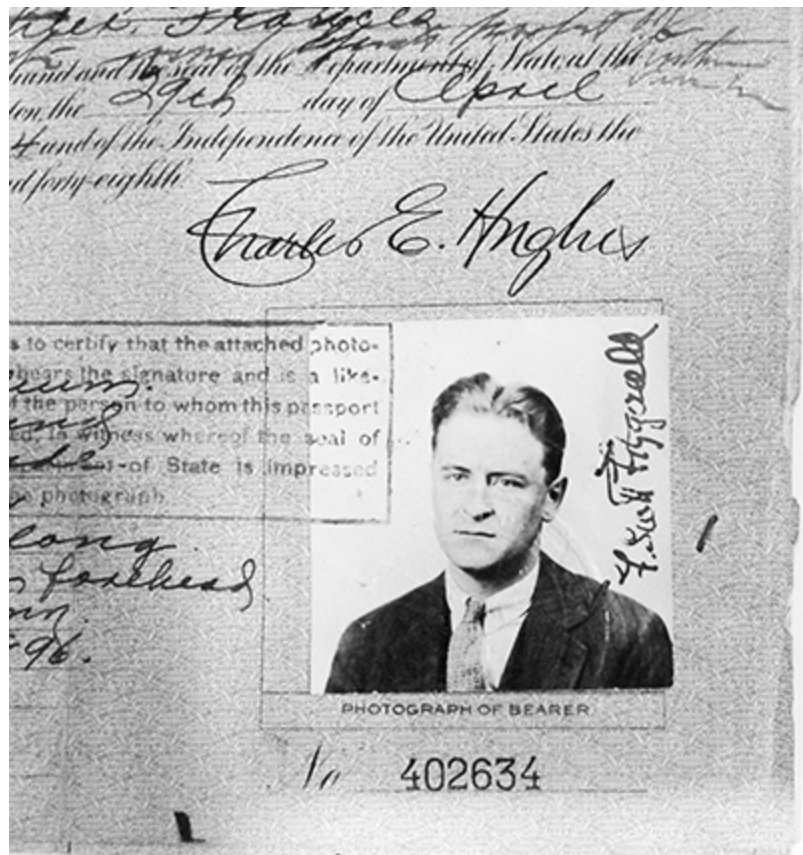 hand and the seal of the Department of State at the
ton, the 29th day of April
4 and of the Independence of the United States the
d forty-eighth.
Charles E. Hughes
s to certify that the attached photo-
bears the signature and is a like-
f the person to whom this passport
ed, in witness whereof the seal of
-of State is impressed
he photograph.
long
forehead
96.
F. Scott Fitzgerald
PHOTOGRAPH OF BEARER
No 402634